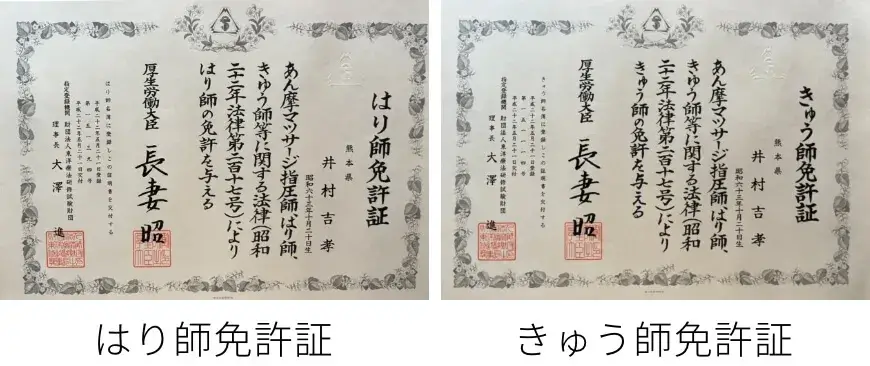 はり師免許証
熊本県
井村吉孝
昭和六十三年十月二十日生
あん摩マツサージ指圧師、はり師、
きゆう師等に関する法律(昭和
二十二年法律第二百十七号)により
はり師の免許を与える
厚生労働大臣 長妻昭
はり師名簿に登録しこの証明書を交付する
平成二十二年五月二十一日登録
平成二十二年五月二十一日交付
指定登録機関 財団法人東洋療法研修試験財団
理事長 大澤進
きゅう師免許証
熊本県
井村吉孝
昭和六十三年十月二十日生
あん摩マツサージ指圧師、はり師、
きゆう師等に関する法律(昭和
二十二年法律第二百十七号)により
きゆう師の免許を与える
厚生労働大臣 長妻昭
きゆう師名簿に登録しこの証明書を交付する
平成二十二年五月二十一日登録
平成二十二年五月二十一日交付
指定登録機関 財団法人東洋療法研修試験財団
理事長 大澤進
はり師免許証
きゅう師免許証